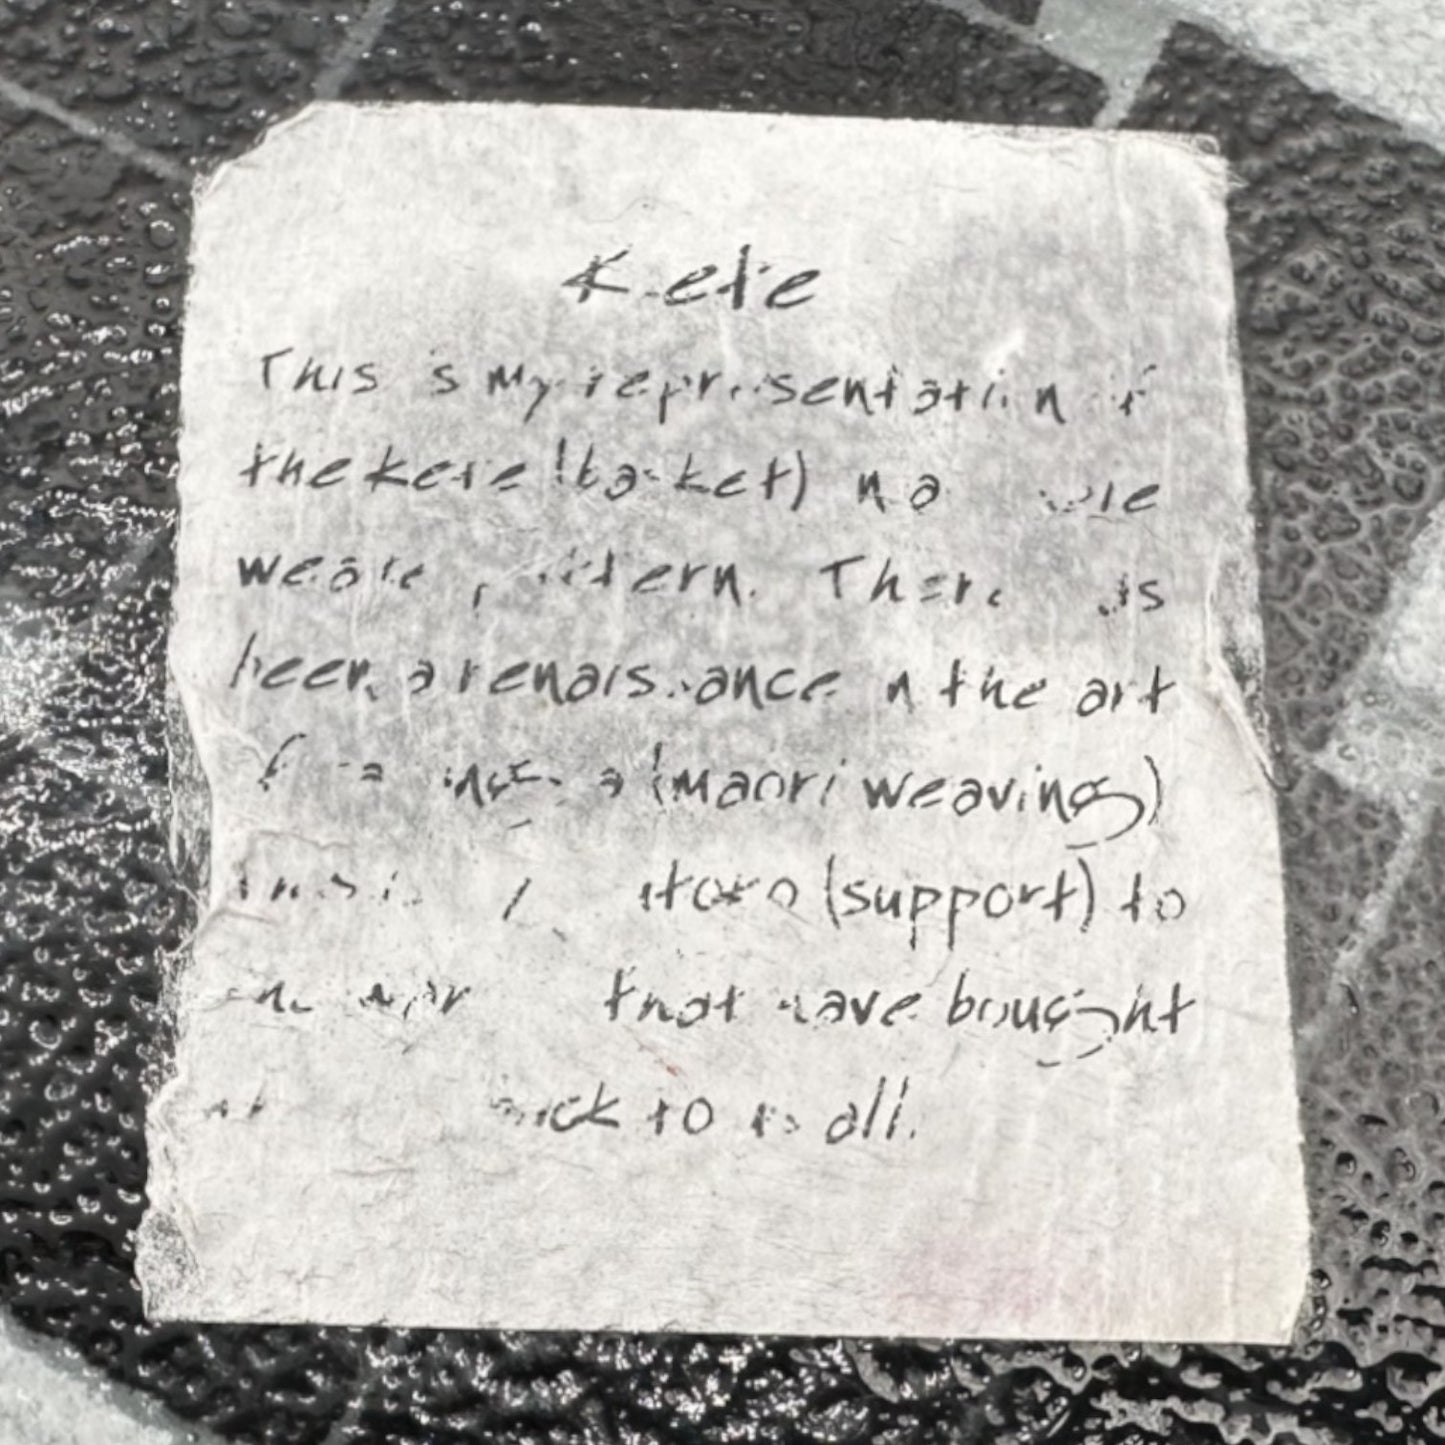 Kete
This is my representation of
the kete (basket) in a
weave pattern. There has
been a renaissance in the art
of (maori weaving)
This is tautoko (support) to
the that have bought
back to us all.